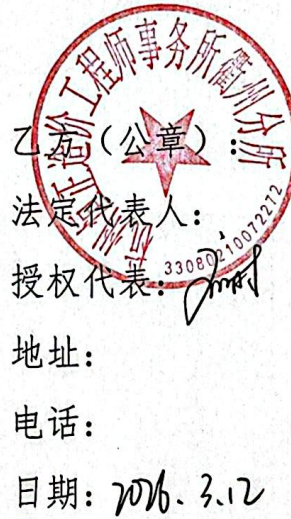 造价工程师事务所衢州分所
33080210072212
乙方（公章）：
法定代表人：
授权代表：
地址：
电话：
日期：2026.3.12